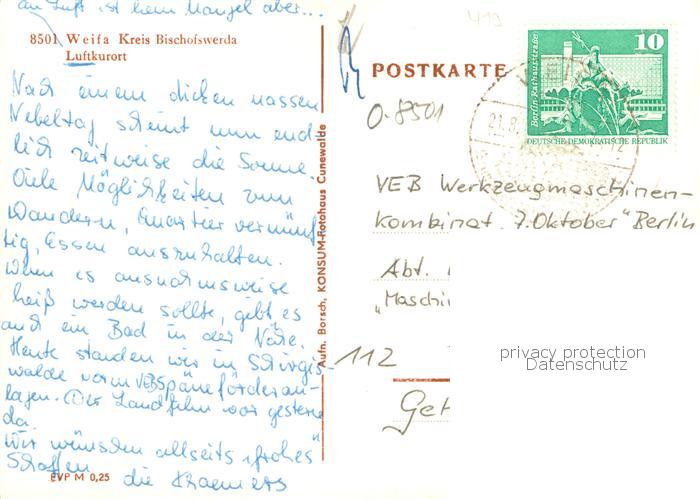 an Luft ist kein Mangel aber...
8501 Weifa Kreis Bischofswerda
Luftkurort
Nach einem dicken nassen
Nebeltag scheint nun end-
lich zeitweise die Sonne.
Viele Möglichkeiten zum
Wandern, Quartier vernünf-
tig, Essen auszuhalten.
Wenn es ausnahmsweise
heiß werden sollte, gibt es
auch ein Bad in der Nähe.
Heute standen wir in Schirgis-
walde vorm VEB Späneförderan-
lagen. (Der Landfilm war gestern
da.
Wir wünschen allseits „frohes"
Schaffen die Kraemers
EVP M 0,25
Aufn. Borsch, KONSUM-Fotohaus Cunewalde
POSTKARTE
419
O-8501
21.8.
10
Berlin-Rathausstraße
DEUTSCHE DEMOKRATISCHE REPUBLIK
VEB Werkzeugmaschinen-
kombinat „7. Oktober" Berlin
Abt.
„Maschi
112
Get
privacy protection
Datenschutz